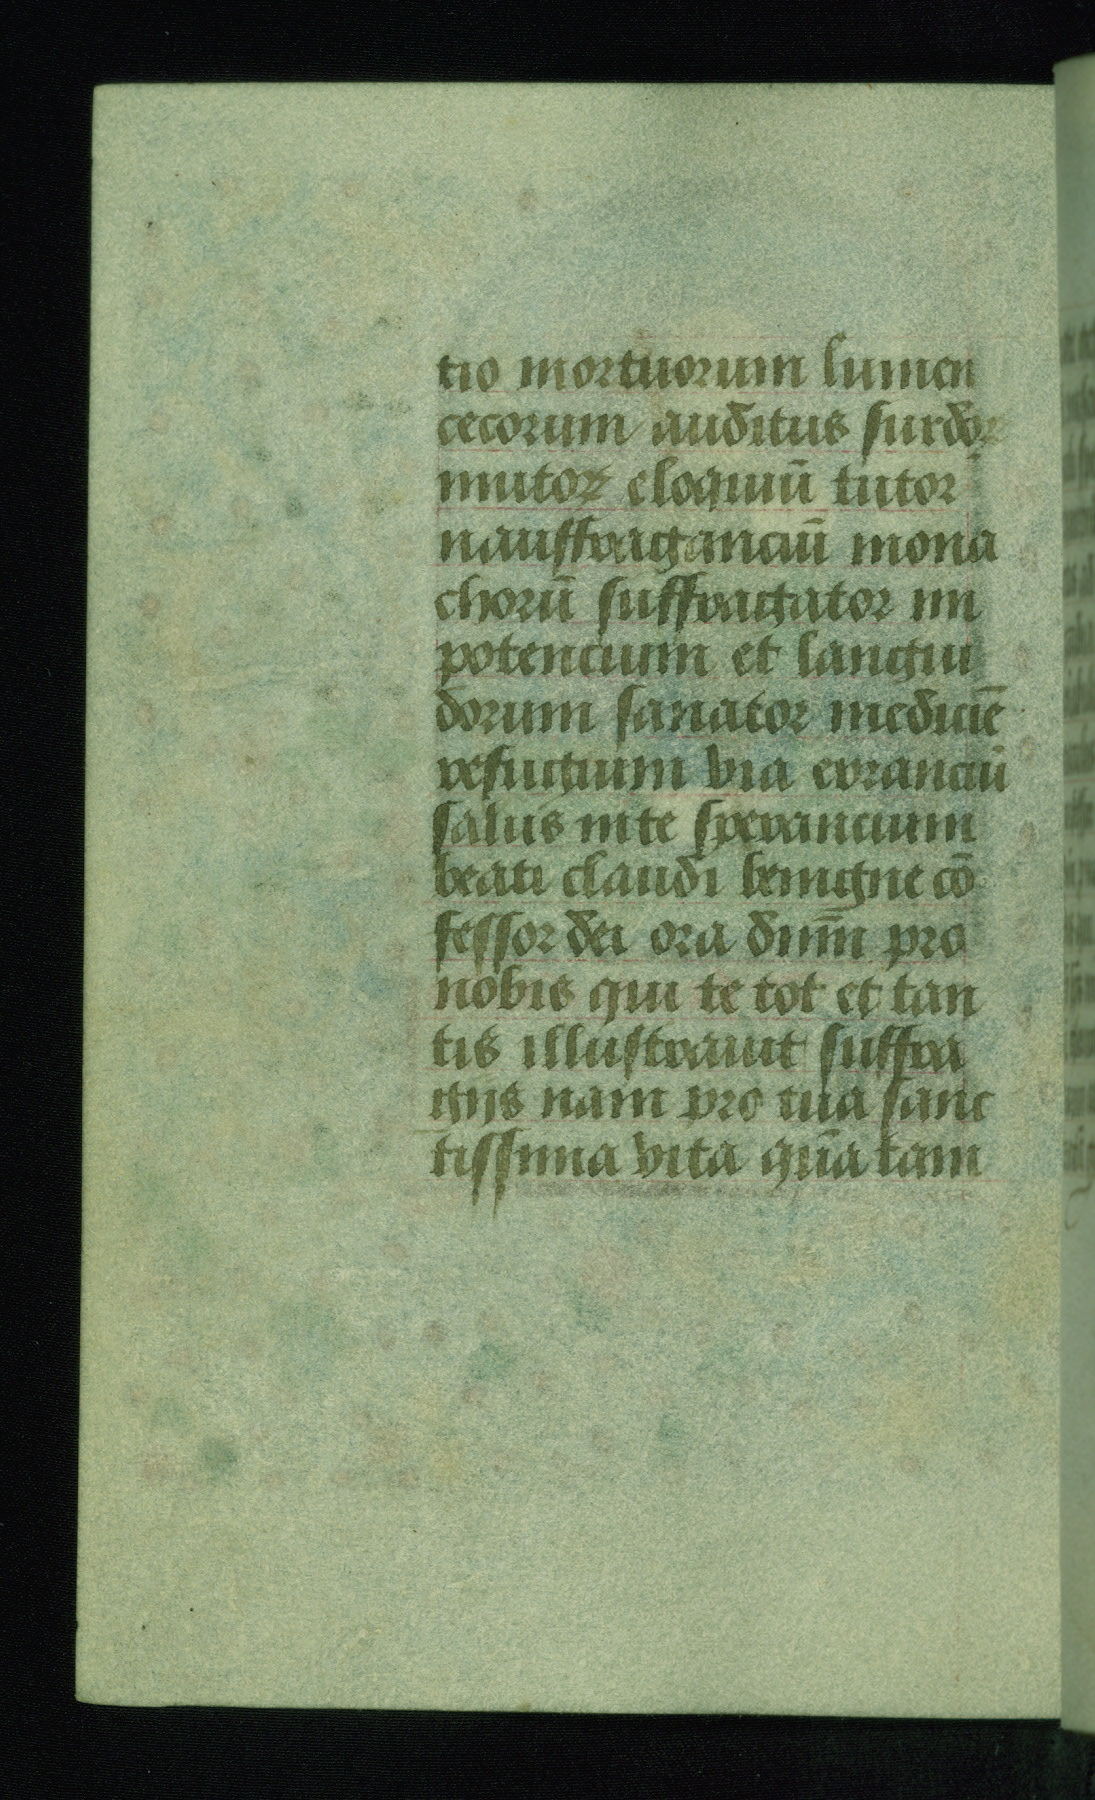 tio mortuorum lumen
cecorum auditus surdoꝝ
mutoꝝ eloquiū tutor
nauffraganciū mona
chorū suffragator im
potencium et langui
dorum sanator mediciē
refugium via erranciū
salus inte sperancium
beati claudi benigne cō
fessor dei ora dnm̄ pro
nobis qui te tot et tan
tis illustrauit suffra
gijs nam pro tua sanc
tissima vita qm̄a tam